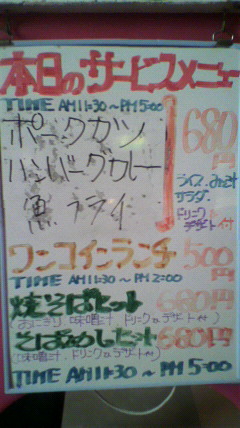 本日のサービスメニュー
TIME AM11:30～PM5:00
ポークカツ
ハンバーグカレー
魚フライ
680円
ライス、みそ汁
サラダ、
ドリンク
デザート付
ワンコインランチ 500円
TIME AM11:30～PM2:00
焼そばセット 680円
(おにぎり、味噌汁、ドリンク、デザート付)
そばめしセット 680円
(味噌汁、ドリンク、デザート付)
TIME AM11:30～PM5:00